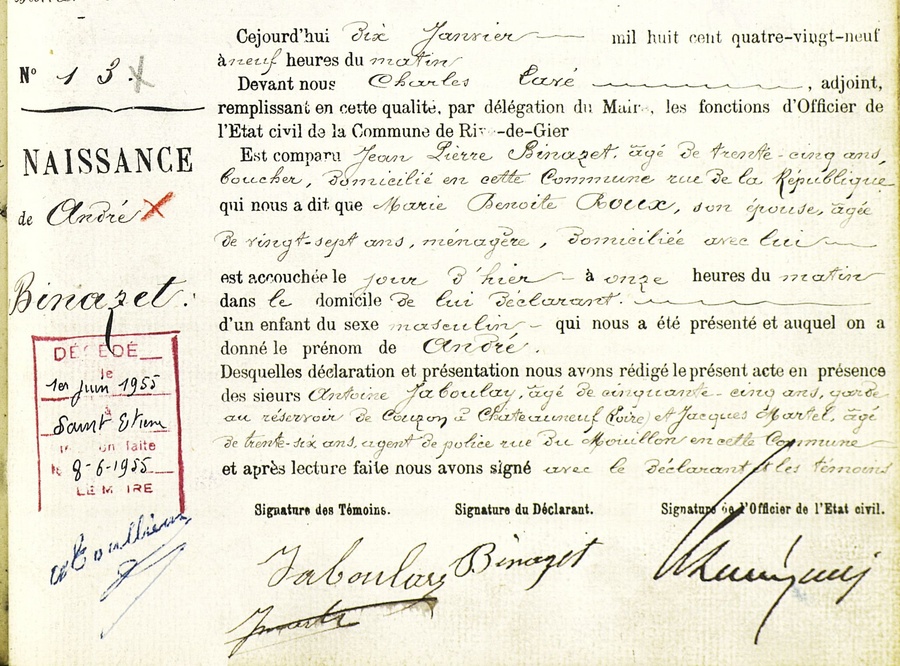 Nº 13
NAISSANCE
de André X
Binazet.
DÉCÉDÉ
le
1er Juin 1955
à
Saint Etienn
faite
8-6-1955
LE M IRE
Cejourd'hui Dix Janvier mil huit cent quatre-vingt-neuf
à neuf heures du matin
Devant nous Charles , adjoint,
remplissant en cette qualité, par délégation du Maire, les fonctions d'Officier de
l'Etat civil de la Commune de Rive-de-Gier
Est comparu Jean Pierre Binazet, âgé de trente-cinq ans,
boucher, domicilié en cette Commune rue de la République
qui nous a dit que Marie Benoite Roux, son épouse, âgée
de vingt-sept ans, ménagère, domiciliée avec lui
est accouchée le jour d'hier - à onze heures du matin
dans le domicile de lui déclarant.
d'un enfant du sexe masculin - qui nous a été présenté et auquel on a
donné le prénom de André.
Desquelles déclaration et présentation nous avons rédigé le présent acte en présence
des sieurs Antoine Jaboulay, âgé de cinquante-cinq ans, garde
au réservoir de Couzon à Chateauneuf (Loire) et Jacques Martel, âgé
de trente-six ans, agent de police rue du Mouillon en cette Commune
et après lecture faite nous avons signé avec le déclarant et les témoins
Signature des Témoins. Signature du Déclarant. Signature de l'Officier de l'Etat civil.
Jaboulay Binazet